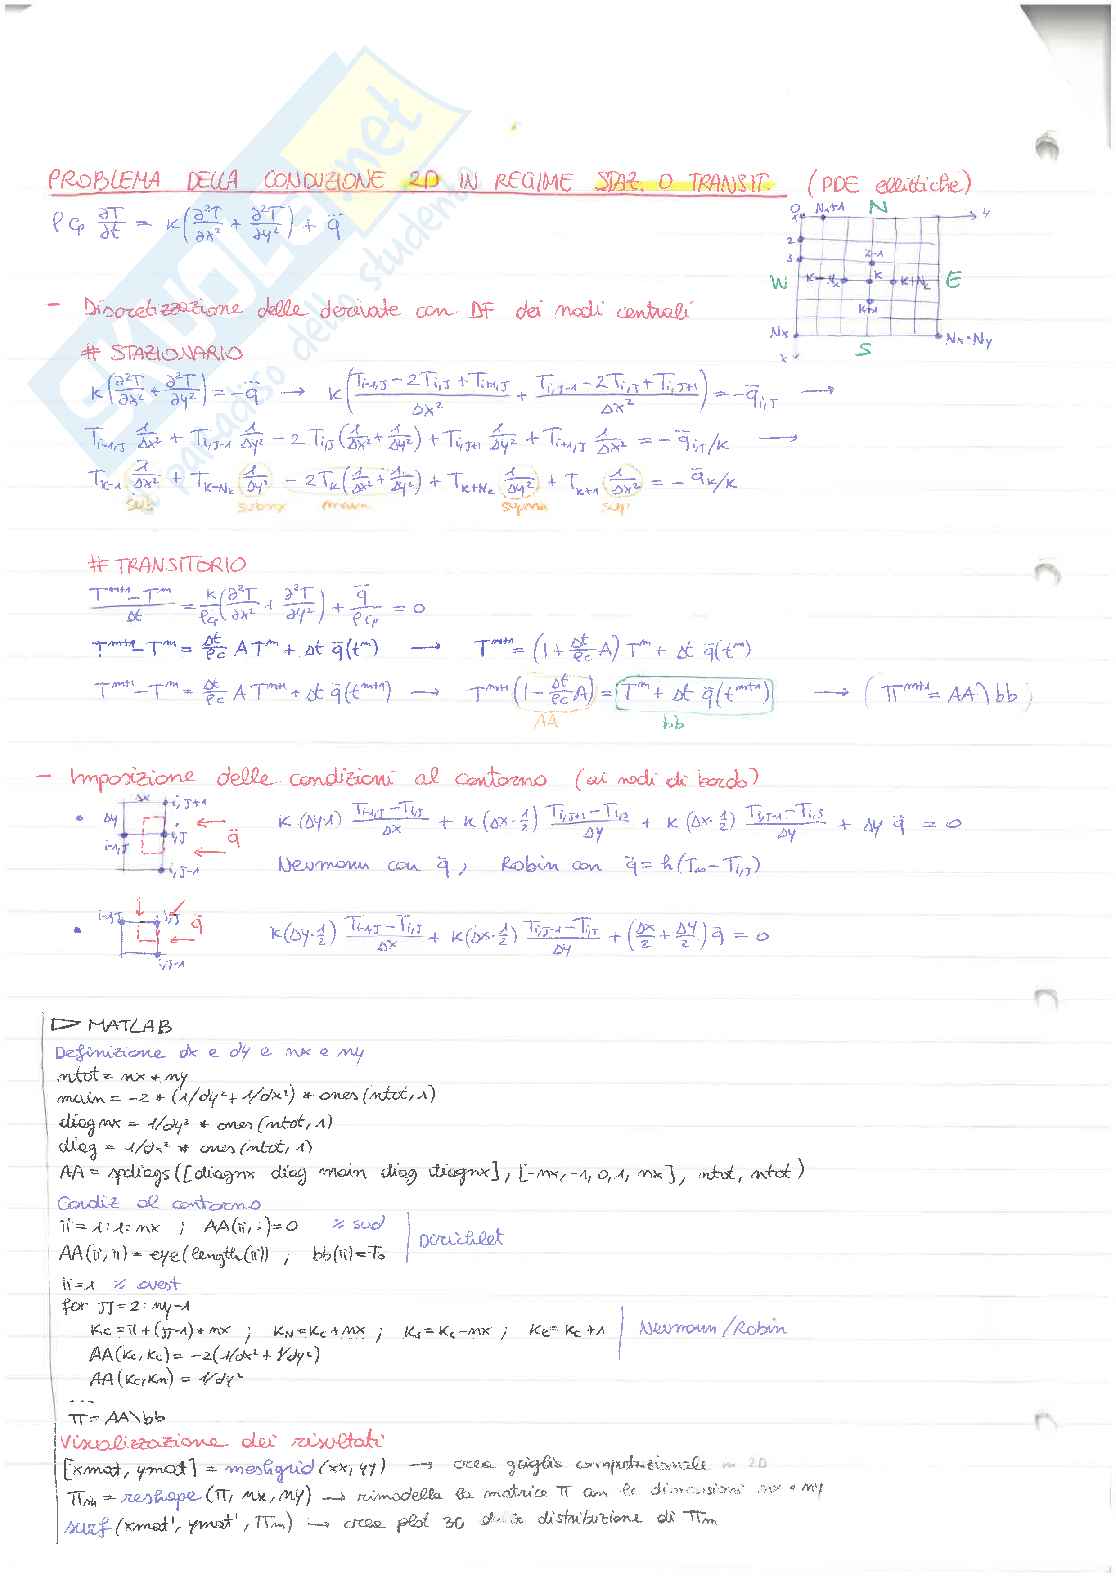 PROBLEMA DELLA CONDUZIONE 2D IN REGIME STAZ. O TRANSIT. (PDE ellittiche)
ρ cp ∂T/∂t = k(∂²T/∂x² + ∂²T/∂y²) + q̈
0 Nx+1 N y
1
2
3
W k k+Nx E
k+1
Nx Nx·Ny
x S
- Discretizzazione delle derivate con DF dei nodi centrali
# STAZIONARIO
k(∂²T/∂x² + ∂²T/∂y²) = -q̈ → k((Ti-1,J - 2Ti,J + Ti+1,J)/Δx² + (Ti,J-1 - 2Ti,J + Ti,J+1)/Δx²) = -q̈i,J →
Ti-1,J 1/Δx² + Ti,J-1 1/Δy² - 2Ti,J(1/Δx² + 1/Δy²) + Ti,J+1 1/Δy² + Ti+1,J 1/Δx² = -q̈i,J/k →
Tk-1 1/Δx² + Tk-Nx 1/Δy² - 2Tk(1/Δx² + 1/Δy²) + Tk+Nx 1/Δy² + Tk+1 1/Δx² = -q̈k/k
sub subnx main supnx sup
# TRANSITORIO
(Tᵐ⁺¹ - Tᵐ)/Δt = k/ρcp(∂²T/∂x² + ∂²T/∂y²) + q̈/ρcp = 0
Tᵐ⁺¹ - Tᵐ = Δt/ρc A Tᵐ + Δt q̈(tᵐ) → Tᵐ⁺¹ = (1 + Δt/ρc A) Tᵐ + Δt q̈(tᵐ)
Tᵐ⁺¹ - Tᵐ = Δt/ρc A Tᵐ⁺¹ + Δt q̈(tᵐ⁺¹) → Tᵐ⁺¹(1 - Δt/ρc A) = Tᵐ + Δt q̈(tᵐ⁺¹) → (TTᵐ⁺¹ = AA\bb)
AA bb
- Imposizione delle condizioni al contorno (ai nodi di bordo)
Δx i,J+1
Δy i,J q̈
i-1,J
i,J-1
• k(Δy·1) (Ti-1,J - Ti,J)/Δx + k(Δx·1/2) (Ti,J+1 - Ti,J)/Δy + k(Δx·1/2) (Ti,J-1 - Ti,J)/Δy + Δy q̈ = 0
Neumann con q̈, Robin con q̈ = h(T∞ - Ti,J)
i-1,J i,J q̈
i,J-1
• k(Δy·1/2) (Ti-1,J - Ti,J)/Δx + k(Δx·1/2) (Ti,J-1 - Ti,J)/Δy + (Δx/2 + Δy/2) q̈ = 0
▷ MATLAB
Definizione dx e dy e nx e ny
ntot = nx * ny
main = -2 * (1/dy² + 1/dx²) * ones(ntot,1)
diagnx = 1/dy² * ones(ntot,1)
diag = 1/dx² * ones(ntot,1)
AA = spdiags([diagnx diag main diag diagnx], [-nx,-1,0,1,nx], ntot, ntot)
Condiz al contorno
ii = 1:1:nx ; AA(ii,:)=0 % sud
AA(ii,ii) = eye(length(ii)) ; bb(ii)=T₀ Dirichlet
ii=1 % ovest
for JJ = 2:ny-1
Kc = ii+(JJ-1)*nx ; KN = Kc+nx ; Ks = Kc-nx ; Ke = Kc+1 Neumann/Robin
AA(Kc,Kc) = -2(1/dx² + 1/dy²)
AA(Kc,Kn) = 1/dy²
...
TT = AA\bb
Visualizzazione dei risultati
[xmat, ymat] = meshgrid(xx,yy) → crea griglia computazionale in 2D
TTm = reshape(TT, nx, ny) → rimodella la matrice TT con le dimensioni nx * ny
surf(xmat', ymat', TTm) → crea plot 3D della distribuzione di TTm
SKUOLA.net
il paradiso dello studente